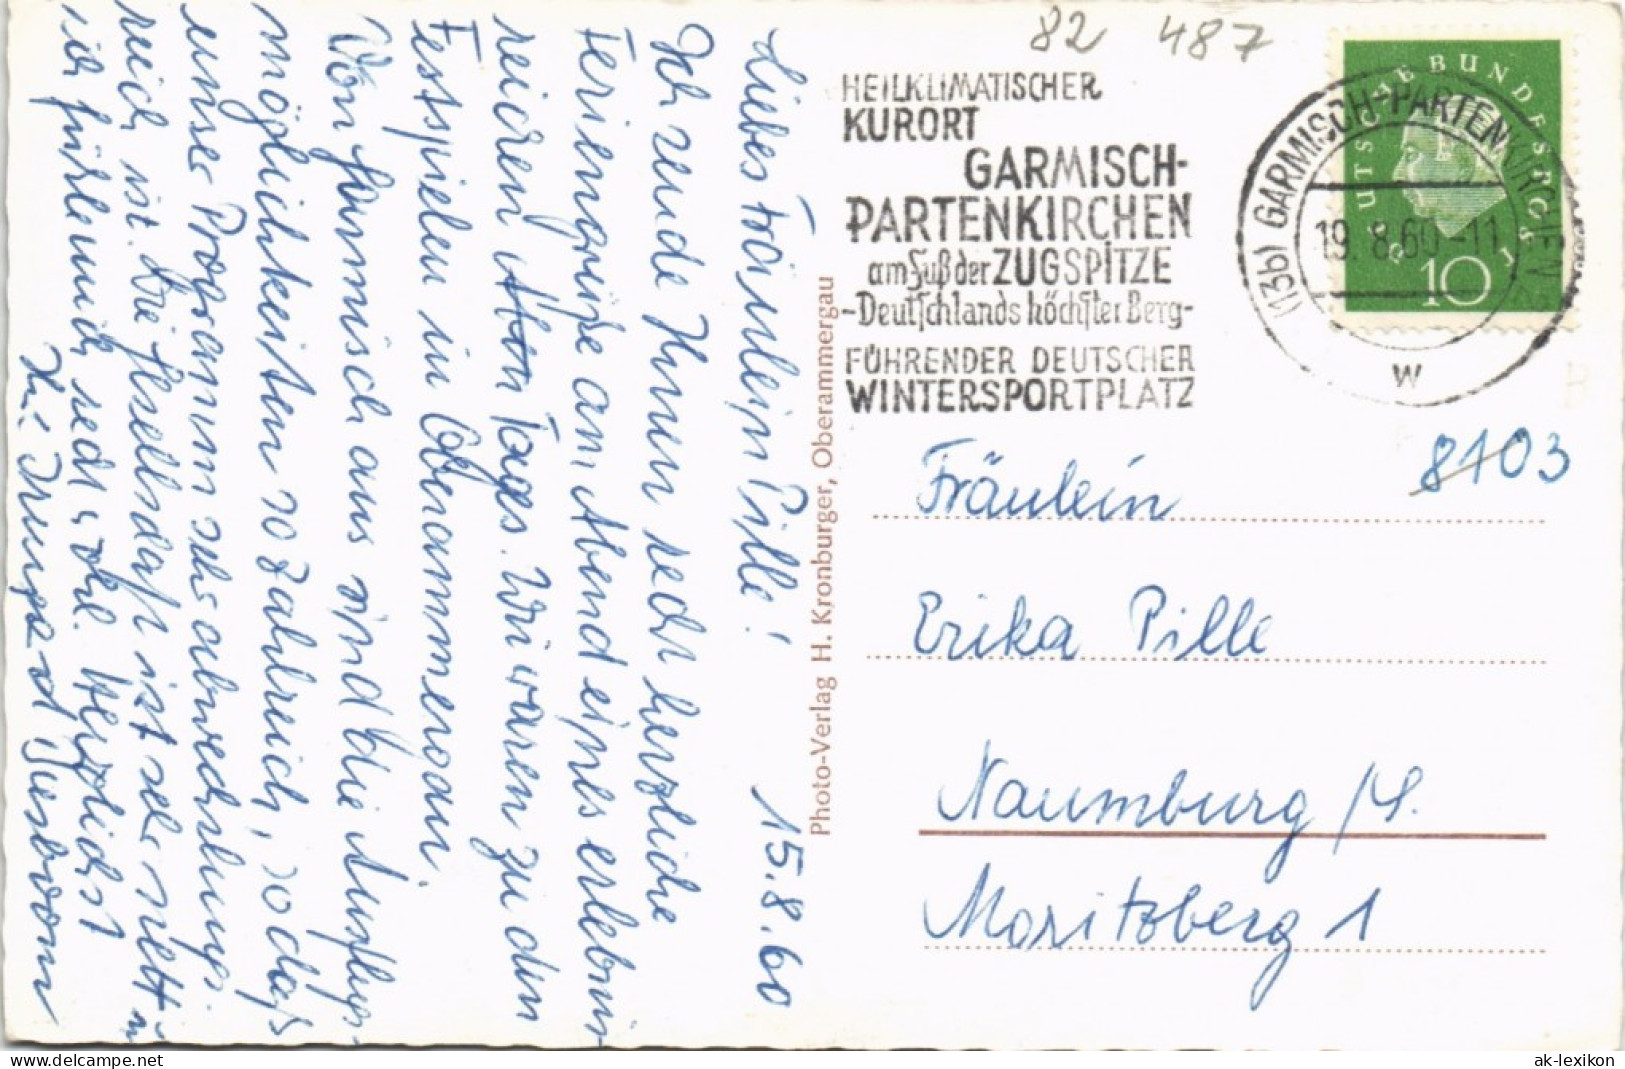 82 487
HEILKLIMATISCHER
KURORT
GARMISCH-
PARTENKIRCHEN
am Fuß der ZUGSPITZE
-Deutschlands höchster Berg-
FÜHRENDER DEUTSCHER
WINTERSPORTPLATZ
DEUTSCHE BUNDESPOST
10
(13b) GARMISCH-PARTENKIRCHEN
19.8.60-11
w
8103
Fräulein
Erika Pille
Naumburg /S.
Moritzberg 1
Photo-Verlag H. Kronburger, Oberammergau
15.8.60
Liebes Fräulein Pille!
Ich sende Ihnen sehr herzliche
Feriengrüße am Abend eines erlebnis-
reichen Tages. Wir waren zu den
Festspielen in Oberammergau.
Von Garmisch aus sind die Ausflugs-
möglichkeiten so zahlreich, so daß
unser Programm sehr abwechslungs-
reich ist. Die Gesellschaft ist sehr nett u.
ich fühle mich sehr wohl. Herzlichst
Ihr